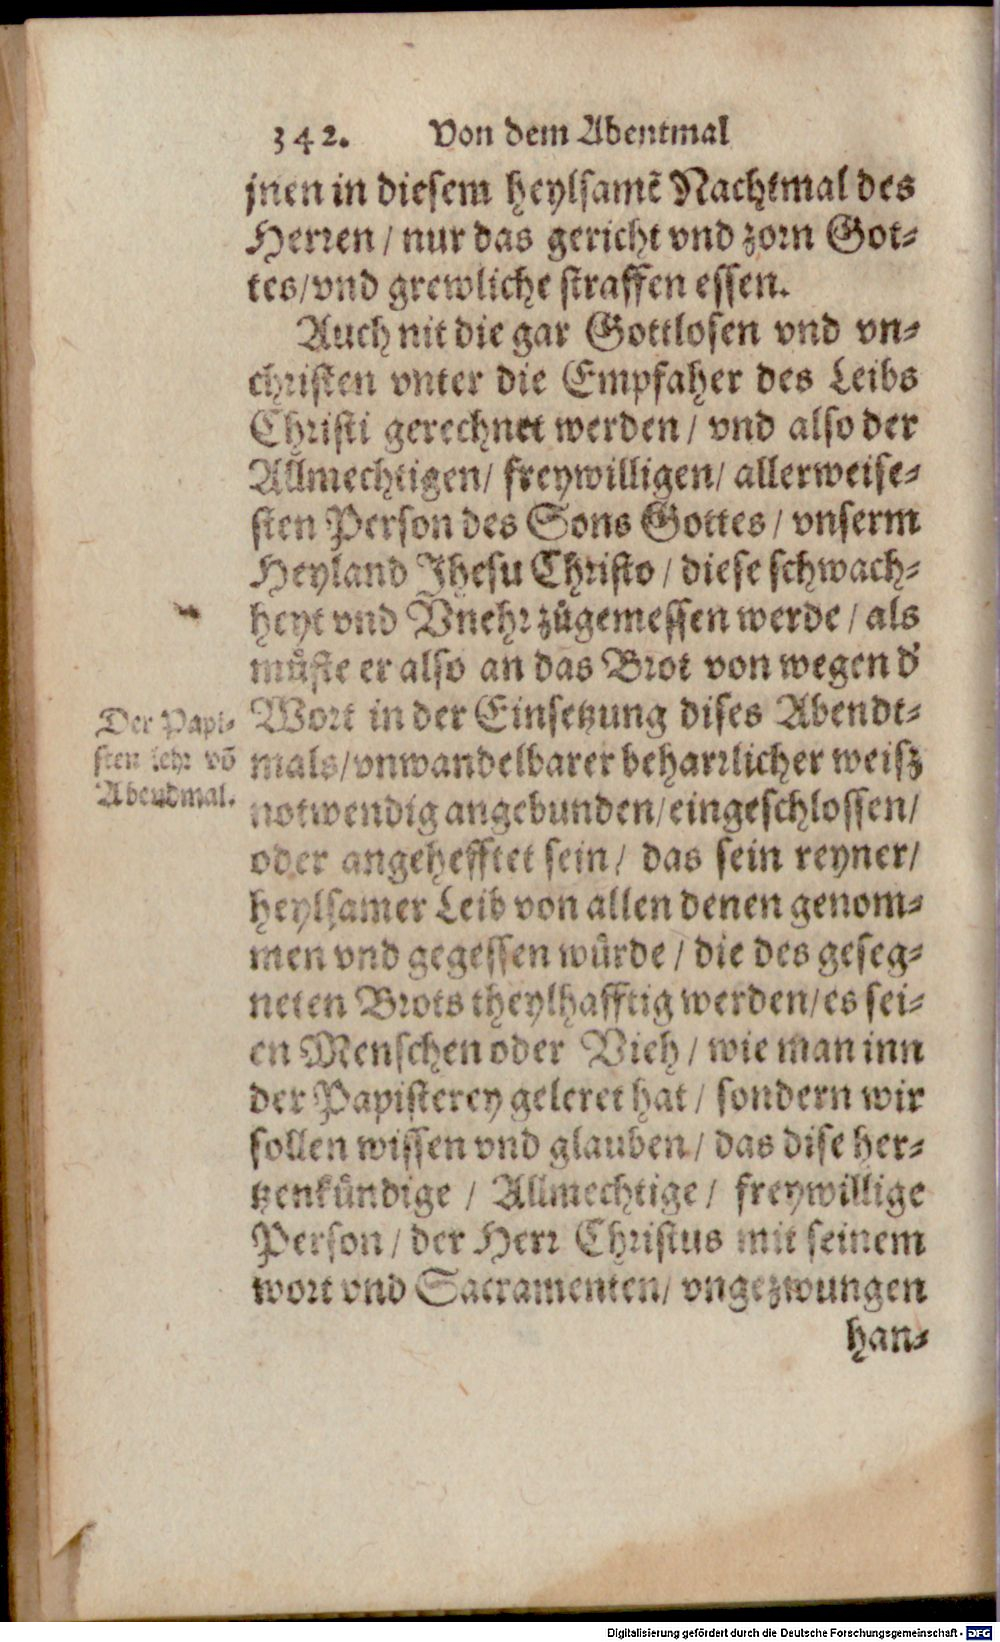 342. Von dem Abentmal
jnen in diesem heylsamẽ Nachtmal des
Herren / nur das gericht vnd zorn Got-
tes/vnd grewliche straffen essen.
Auch nit die gar Gottlosen vnd vn-
christen vnter die Empfaher des Leibs
Christi gerechnet werden / vnd also der
Allmechtigen/ freywilligen/ allerweise-
sten Person des Sons Gottes / vnserm
Heyland Jhesu Christo / diese schwach-
heyt vnd Vnehr zůgemessen werde / als
můste er also an das Brot von wegen d'
Wort in der Einsetzung dises Abendt-
mals/vnwandelbarer beharrlicher weisz
notwendig angebunden/eingeschlossen/
oder angehefftet sein / das sein reyner/
heylsamer Leib von allen denen genom-
men vnd gegessen würde / die des geseg-
neten Brots theylhafftig werden/es sei-
en Menschen oder Vieh / wie man inn
der Papisterey geleret hat / sondern wir
sollen wissen vnd glauben / das dise her-
tzenkündige / Allmechtige / freywillige
Person / der Herr Christus mit seinem
wort vnd Sacramenten/ vngezwungen
han-
Der Papi-
sten lehr võ
Abendmal.
Digitalisierung gefördert durch die Deutsche Forschungsgemeinschaft - DFG